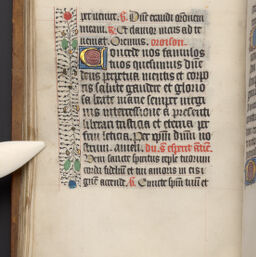 pervenire. ℟. Dñe exaudi orõnem
meam. ℟. Et clamor meus ad te
veniat. Oremus. oroison.
Concede nos famulos
tuos quesumus dñe
deus perpetua mentis et corpo
ris sanitate gaudere et glorio
sa beate marie semper virgi
nis intercessione a presenti
liberari tristicia et eterna per
frui leticia. Per xp̃m dñm no
strum. amen. du s. esperit
Veni sancte spiritus reple tuorum
corda fidelium et tui amoris in eis
ignẽ accende. ℟. Emitte spm̃ tuũ et